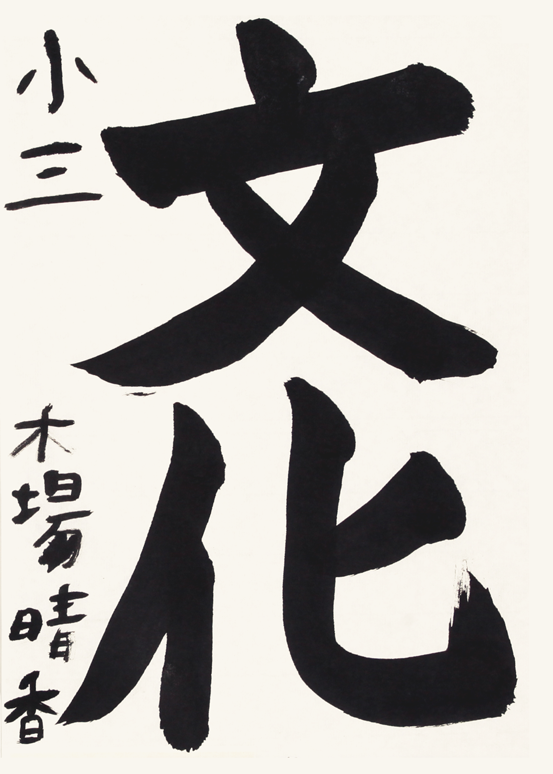 文化
小三 木場晴香